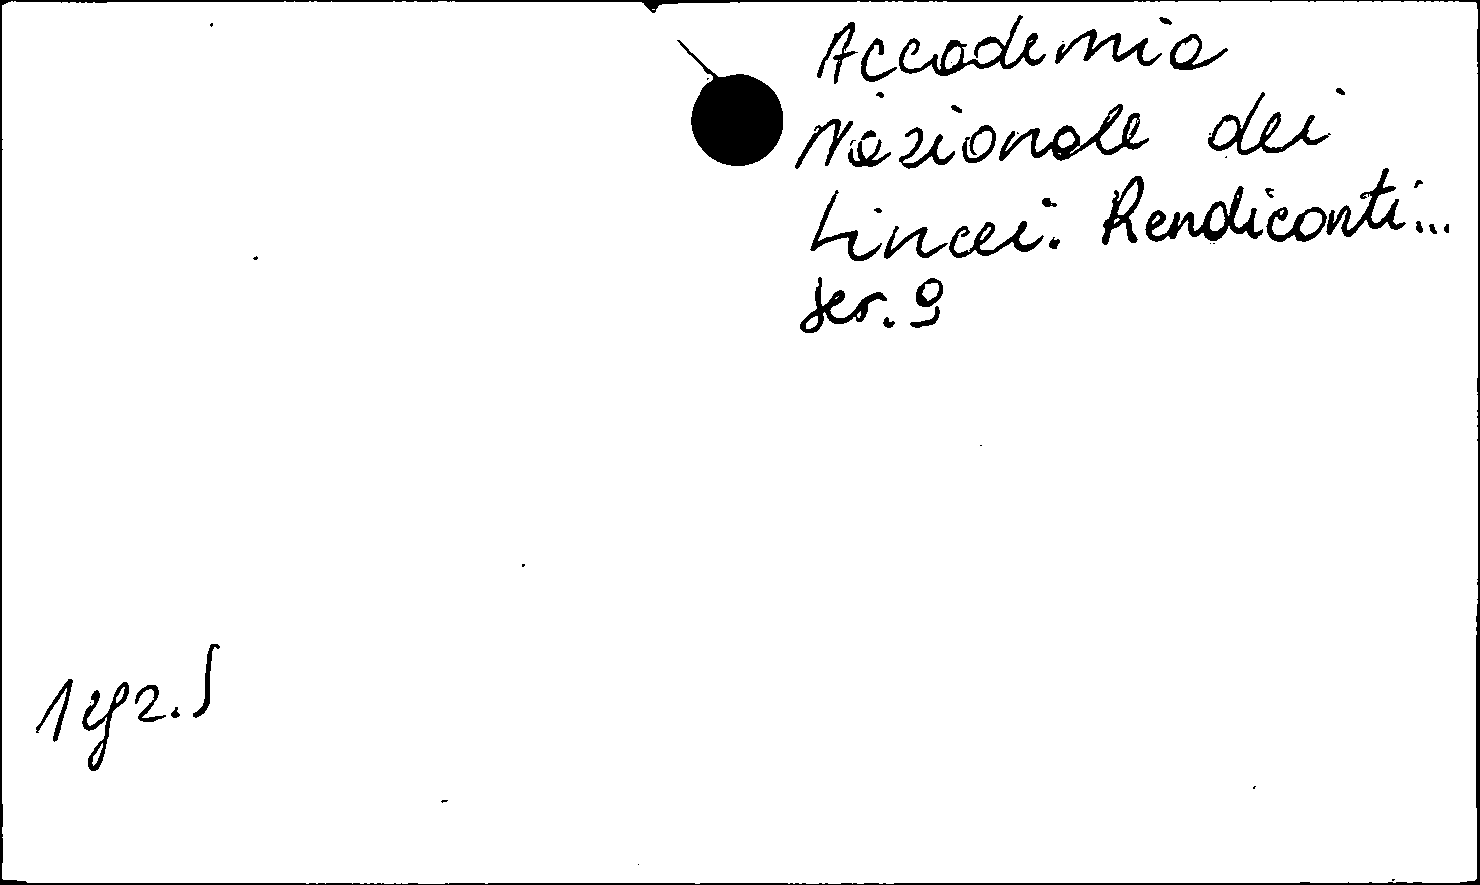 Accademia
Nazionale dei
Lincei. Rendiconti...
Ser. 9
1 egz.